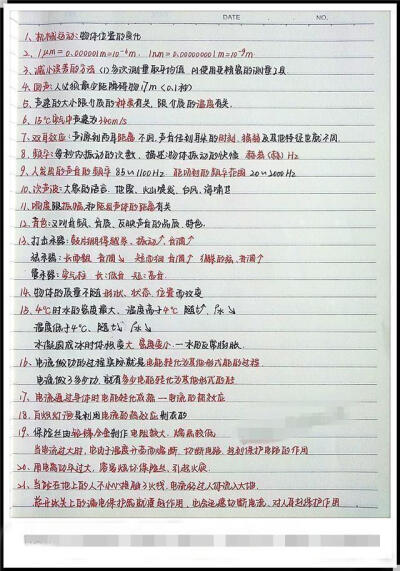 DATE NO.
1、机械运动：物体位置的变化
2、1μm=0.000001m=10⁻⁶m， 1nm=0.000000001m=10⁻⁹m
3、减小误差的方法 (1)多次测量取平均值 (2)使用更精密的测量工具
4、回声：人必须距障碍物17m(<0.1秒)
5、声速的大小跟介质的种类有关，跟介质的温度有关。
6、15℃空气中声速为340m/s
7、双耳效应：声源到两耳距离不同，声音传到耳朵的时刻、强弱及其他特征也就不同。
8、频率：每秒内振动的次数，描述物体振动的快慢 赫兹(赫)Hz
9、人发出的声音的频率 85~1100Hz 能听到的频率范围 20~2000Hz
10、次声波：大象的语言、地震、火山喷发、台风、海啸
11、响度跟振幅和距发声体的距离有关
12、音色：又叫音频、音质，反映声音的品质、特色。
13、打击乐器：鼓皮绷得越紧，振动↑ 音调↑
弦乐器：长而粗 音调↘ 短而细 音调↑ 绷得紧，音调↑
管乐器：空气柱 长：低音 短：高音
14、物体的质量不随形状、状态、位置而改变
15、4℃时水的密度最大、温度高于4℃ 随t↗ ρ水↘
温度低于4℃、随t↘ ρ水↘
水凝固成冰时体积变大 密度变小——水的反常膨胀
16、电流做功的过程实际就是电能转化为其他形式能的过程
电流做了多少功，就有多少电能转化为其他形式的能
17、电流通过导体时电能转化成热—电流的热效应
18、白炽灯泡是利用电流的热效应制成的
19、保险丝由铅锑合金制作 电阻较大、熔点较低
当电流过大时，由于温度升高而熔断，切断电路，起到保护电路的作用
20、用电高功率过大，容易烧坏保险丝，引起火灾
21、当站在地上的人不小心接触了火线，电流经过人体流入大地，
总开关上的漏电保护器就要起作用，也会迅速切断电流，对人起到保护作用